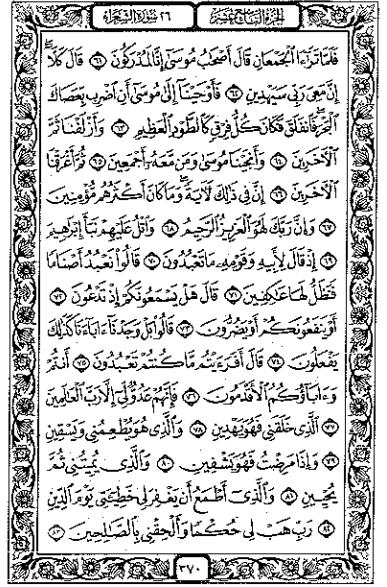 الجزء التاسع عشر
٢٦ سورة الشعراء
فَلَمَّا تَرَٰٓءَا ٱلْجَمْعَانِ قَالَ أَصْحَٰبُ مُوسَىٰٓ إِنَّا لَمُدْرَكُونَ ٦١ قَالَ كَلَّآ
إِنَّ مَعِىَ رَبِّى سَيَهْدِينِ ٦٢ فَأَوْحَيْنَآ إِلَىٰ مُوسَىٰٓ أَنِ ٱضْرِب بِّعَصَاكَ
ٱلْبَحْرَ فَٱنفَلَقَ فَكَانَ كُلُّ فِرْقٍ كَٱلطَّوْدِ ٱلْعَظِيمِ ٦٣ وَأَزْلَفْنَا ثَمَّ
ٱلْءَاخَرِينَ ٦٤ وَأَنجَيْنَا مُوسَىٰ وَمَن مَّعَهُۥٓ أَجْمَعِينَ ٦٥ ثُمَّ أَغْرَقْنَا
ٱلْءَاخَرِينَ ٦٦ إِنَّ فِى ذَٰلِكَ لَءَايَةً وَمَا كَانَ أَكْثَرُهُم مُّؤْمِنِينَ
٦٧ وَإِنَّ رَبَّكَ لَهُوَ ٱلْعَزِيزُ ٱلرَّحِيمُ ٦٨ وَٱتْلُ عَلَيْهِمْ نَبَأَ إِبْرَٰهِيمَ
٦٩ إِذْ قَالَ لِأَبِيهِ وَقَوْمِهِۦ مَا تَعْبُدُونَ ٧٠ قَالُوا۟ نَعْبُدُ أَصْنَامًا
فَنَظَلُّ لَهَا عَٰكِفِينَ ٧١ قَالَ هَلْ يَسْمَعُونَكُمْ إِذْ تَدْعُونَ ٧٢
أَوْ يَنفَعُونَكُمْ أَوْ يَضُرُّونَ ٧٣ قَالُوا۟ بَلْ وَجَدْنَآ ءَابَآءَنَا كَذَٰلِكَ
يَفْعَلُونَ ٧٤ قَالَ أَفَرَءَيْتُم مَّا كُنتُمْ تَعْبُدُونَ ٧٥ أَنتُمْ
وَءَابَآؤُكُمُ ٱلْأَقْدَمُونَ ٧٦ فَإِنَّهُمْ عَدُوٌّ لِّىٓ إِلَّا رَبَّ ٱلْعَٰلَمِينَ
٧٧ ٱلَّذِى خَلَقَنِى فَهُوَ يَهْدِينِ ٧٨ وَٱلَّذِى هُوَ يُطْعِمُنِى وَيَسْقِينِ
٧٩ وَإِذَا مَرِضْتُ فَهُوَ يَشْفِينِ ٨٠ وَٱلَّذِى يُمِيتُنِى ثُمَّ
يُحْيِينِ ٨١ وَٱلَّذِىٓ أَطْمَعُ أَن يَغْفِرَ لِى خَطِيٓـَٔتِى يَوْمَ ٱلدِّينِ
٨٢ رَبِّ هَبْ لِى حُكْمًا وَأَلْحِقْنِى بِٱلصَّٰلِحِينَ ٨٣
٣٧٠